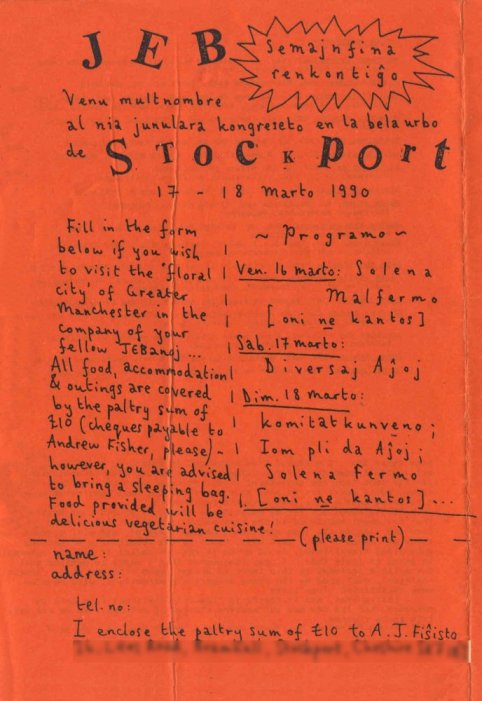 JEB
Semajnfina
renkontiĝo
Venu multnombre
al nia junulara kongreseto en la bela urbo
de STOCKPORT
17 - 18 marto 1990
Fill in the form
below if you wish
to visit the 'floral
city' of Greater
Manchester in the
company of your
fellow JEBanoj ...
All food, accommodation
& outings are covered
by the paltry sum of
£10 (cheques payable to
Andrew Fisher, please) -
however, you are advised
to bring a sleeping bag.
Food provided will be
delicious vegetarian cuisine!
~ Programo ~
Ven. 16 marto: Solena
Malfermo
[oni ne kantos]
Sab. 17 marto:
Diversaj Aĵoj
Dim. 18 marto:
komitatkunveno;
Iom pli da Aĵoj;
Solena Fermo
[oni ne kantos]...
(please print)
name:
address:
tel. no:
I enclose the paltry sum of £10 to A.J. Fiŝisto